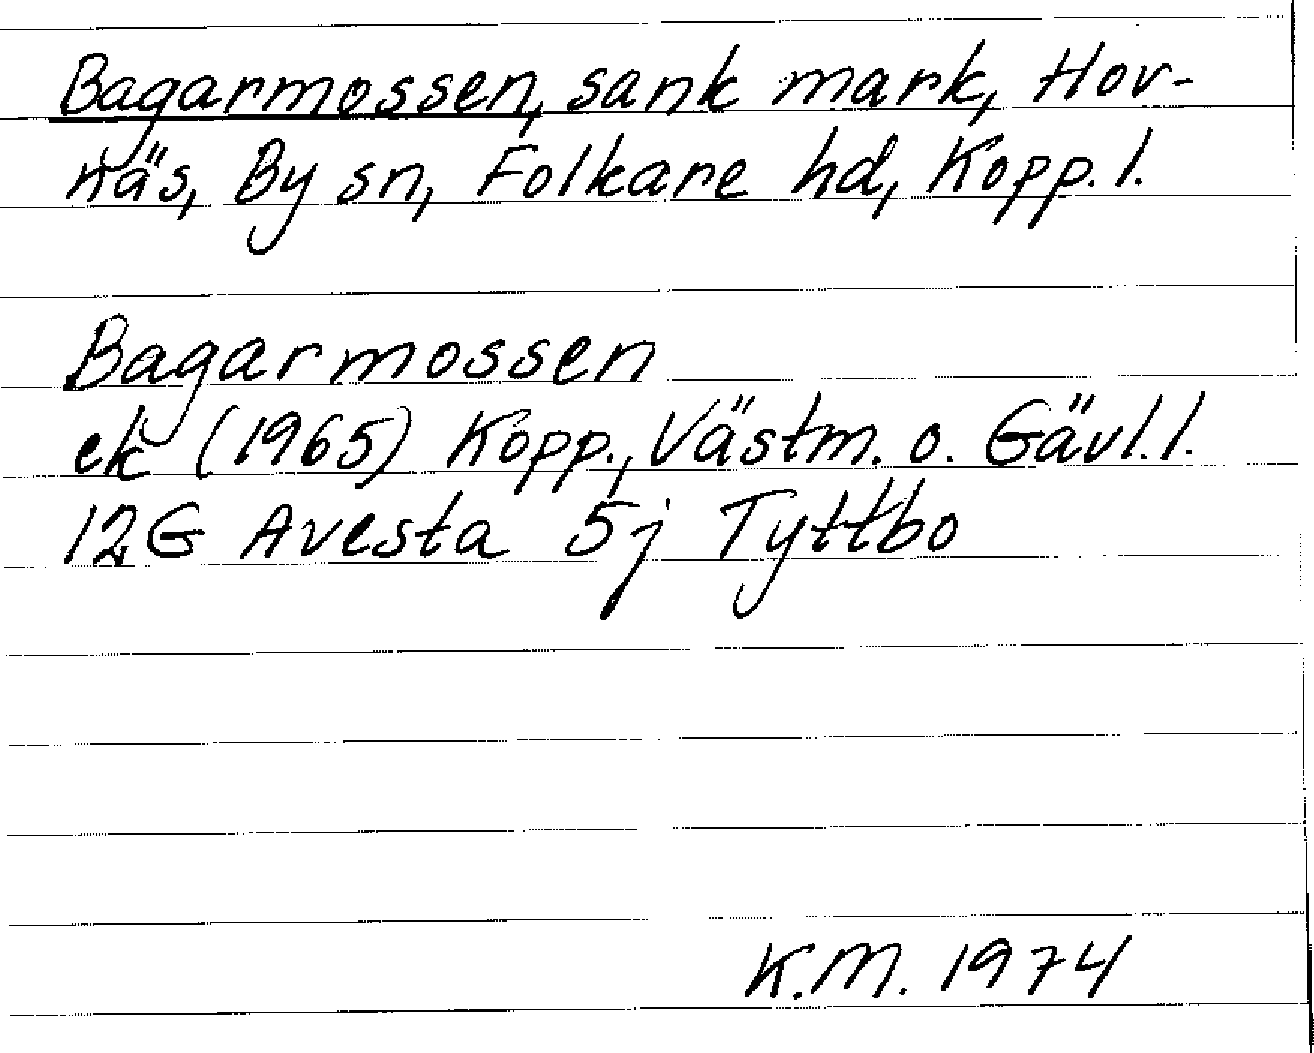 Bagarmossen, sank mark, Hov-
näs, By sn, Folkare hd, Kopp. l.
Bagarmossen
ek (1965) Kopp., Västm. o. Gävl. l.
12G Avesta 5j Tyttbo
K.M. 1974